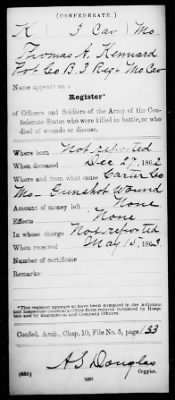 (CONFEDERATE.)
K 3 Cav Mo
Thomas A. Kennard
Pvt Co B. 3 Regt Mo Cav
Name appears on a
Register*
of Officers and Soldiers of the Army of the Con-
federate States who were killed in battle, or who
died of wounds or disease.
Where born Not reported
When deceased Dec 27, 1862
Where and from what cause Carter Co
Mo- Gunshot Wound
Amount of money left None
Effects None
In whose charge Not reported
When received May 15, 1863
Number of certificate
Remarks:
*This register appears to have been compiled in the Adjutant
and Inspector General's Office from returns furnished by Hospi-
tals and by Regimental and Company Officers.
Confed. Arch., Chap. 10, File No. 5, page 153
A S Douglas
Copyist.